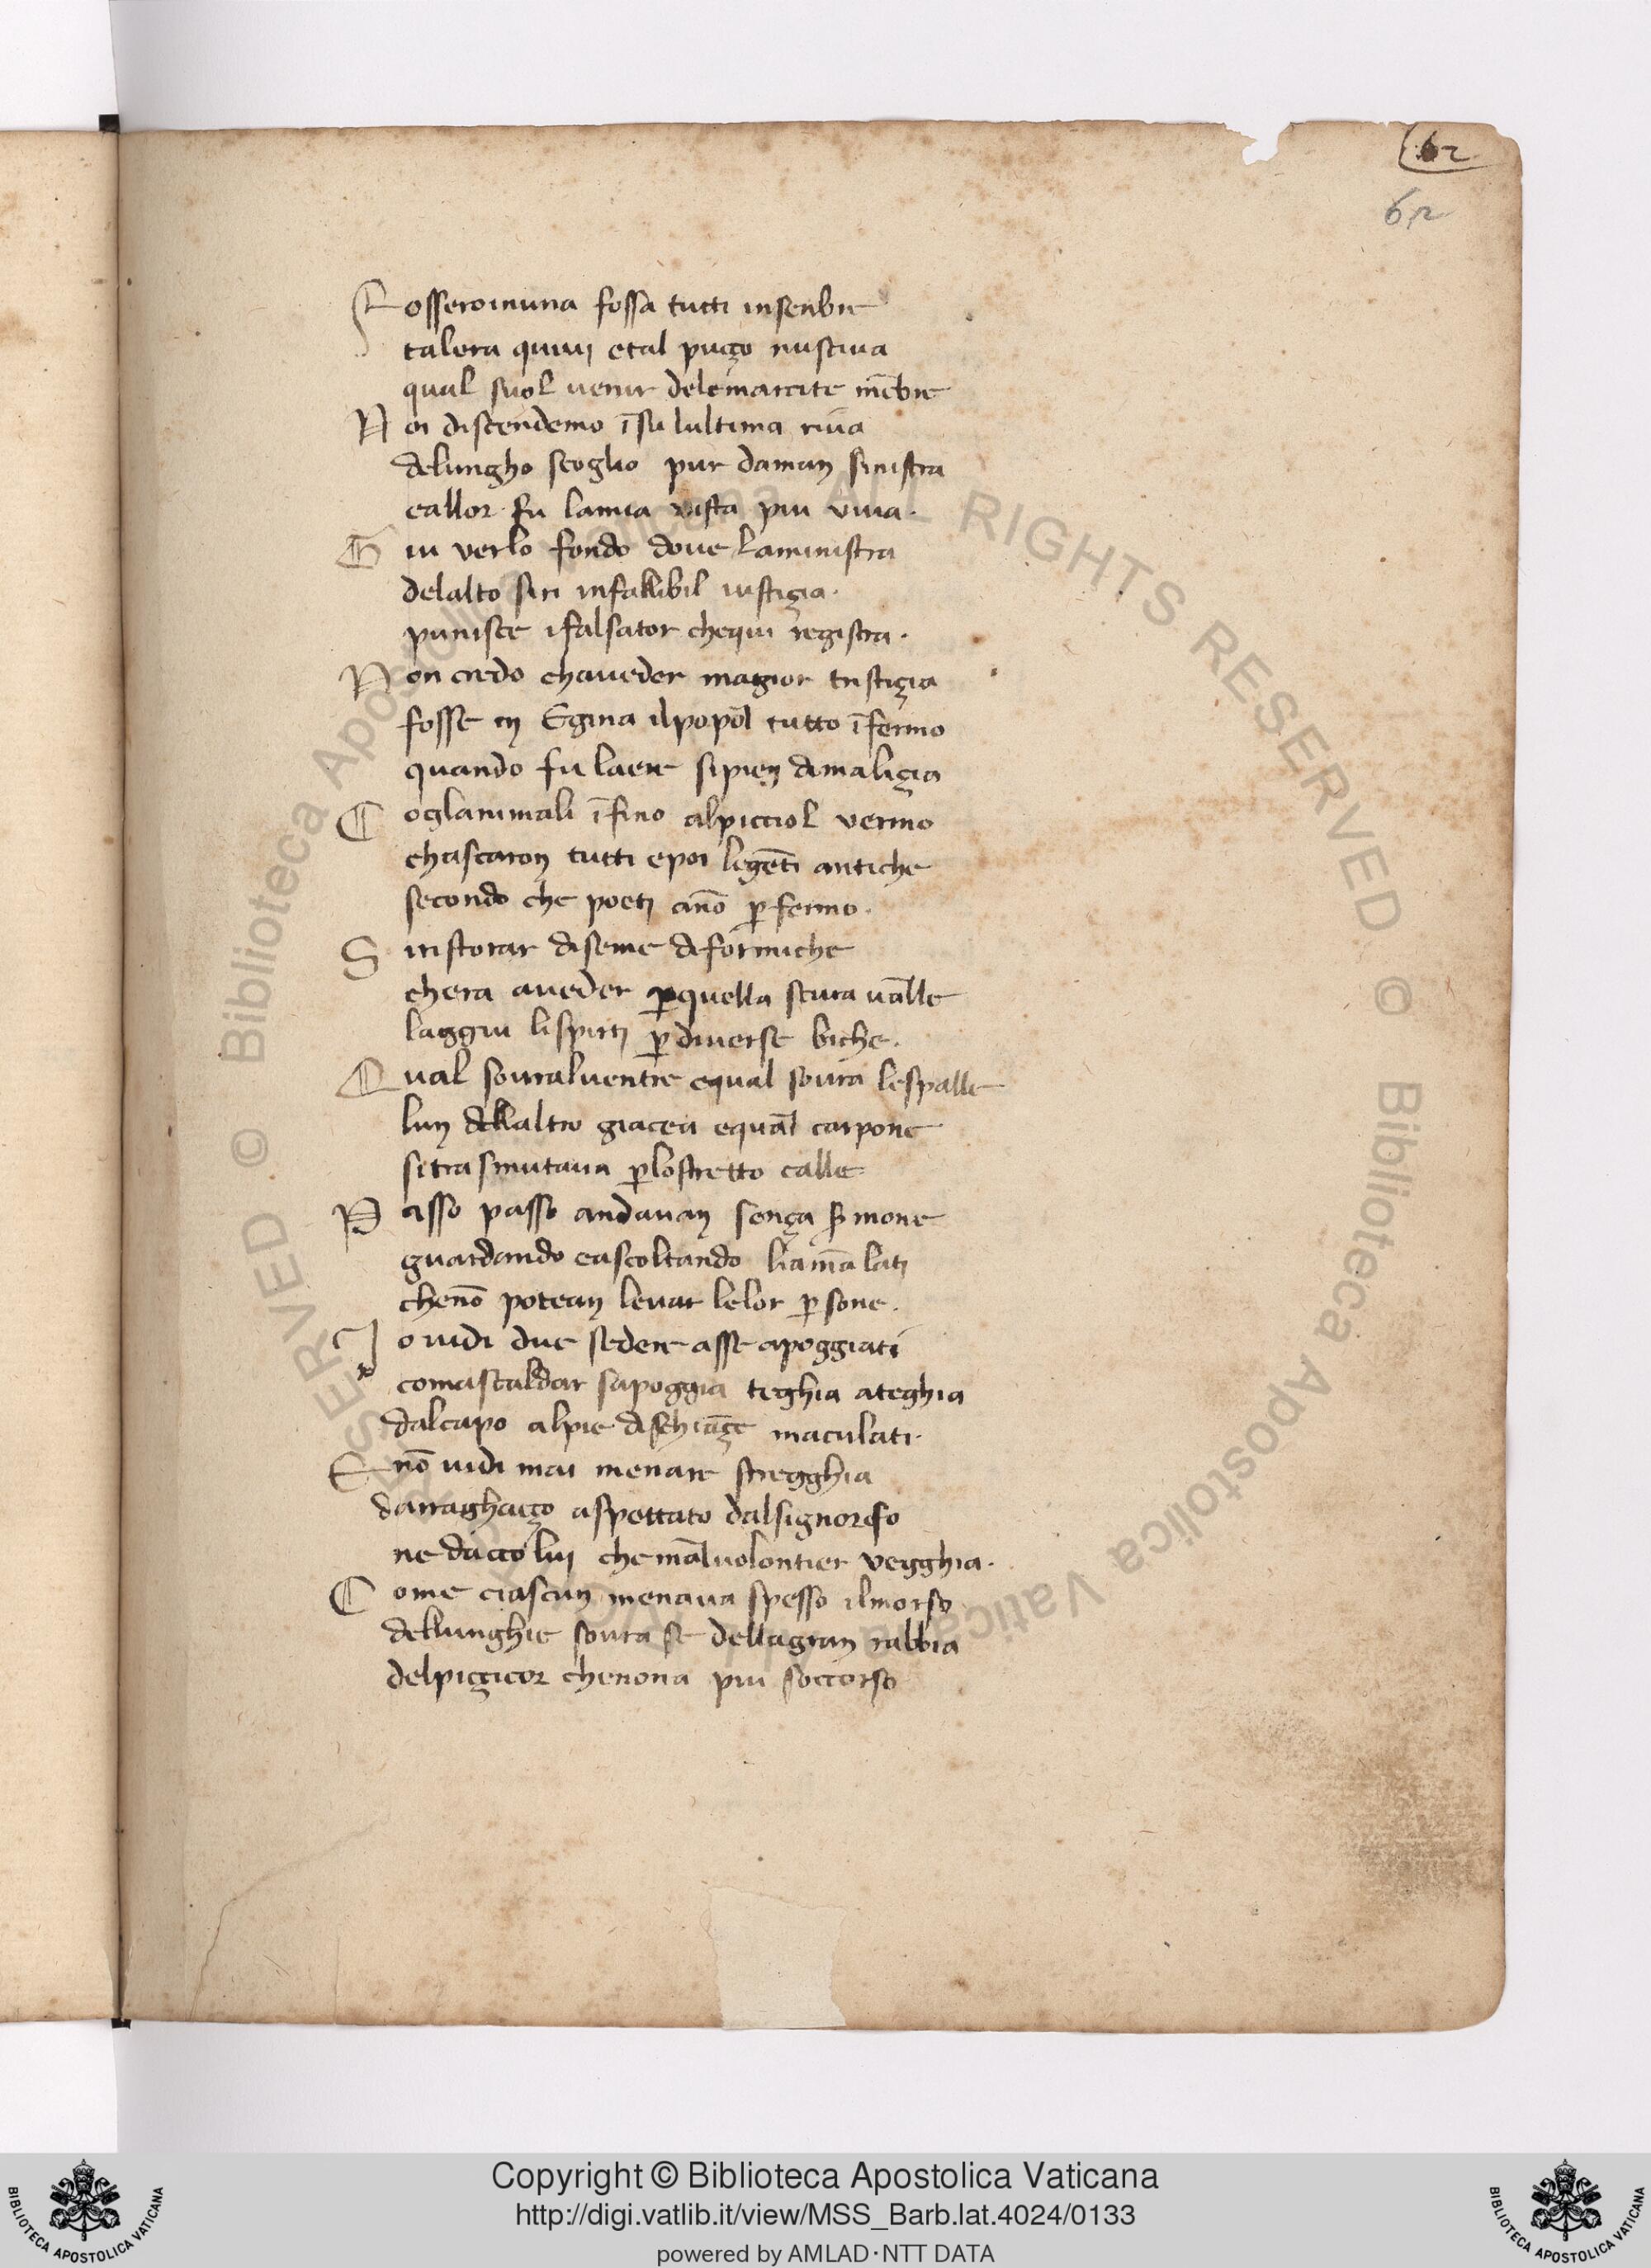 62
62
Fosseroinuna fossa tutti insenbre
talera quiuj etal puço nusciua
qual suol uenir delemarcite mēbre
Noi discendemo īsu lultima riua
delungho scoglio pur daman sinistra
eallor fu lamia uista piu uiua.
Giu verlo fondo doue laministra
delalto siri infallibil iustiçia.
punisce ifalsator chequi registra.
Non credo chaueder magior tristiçia
fosse in Egina ilpopol tutto īfermo
quando fu laere sipien dimaliçia
Coglanimali īfino alpicciol vermo
chascaron tutti epoi legēti antiche
secondo che poeti ānō ꝑfermo.
Siristorar diseme diformiche
chera aueder ꝑquella scura ualle
laggiu lispirti ꝑdiuerse biche.
Qual soura luentre equal soura lespalle
lun dellaltro giacea equal carpone
sitrasmutaua ꝑlostretto calle
Passo passo andauan sença ẜmone
guardando eascoltando liamālati
chenō potean leuar lelor ꝑsone.
Io uidi due sedere asse apoggiati
comascaldar sapoggia teghia ateghia
dalcapo alpie dischiāçe maculati.
E nō uidi mai menare stregghia
darraghaiço aspettato dalsignorso
ne dacco lui chemaluolontier uegghia.
Come ciascun menaua spesso ilmorso
dellunghie soura se dellagran rabbia
delpiççicor chenona piu soccorso
© Biblioteca Apostolica Vaticana ALL RIGHTS RESERVED © Biblioteca Apostolica Vaticana ALL RIGHTS RESERVED
Copyright © Biblioteca Apostolica Vaticana
http://digi.vatlib.it/view/MSS_Barb.lat.4024/0133
powered by AMLAD·NTT DATA
BIBLIOTECA APOSTOLICA VATICANA
BIBLIOTECA APOSTOLICA VATICANA